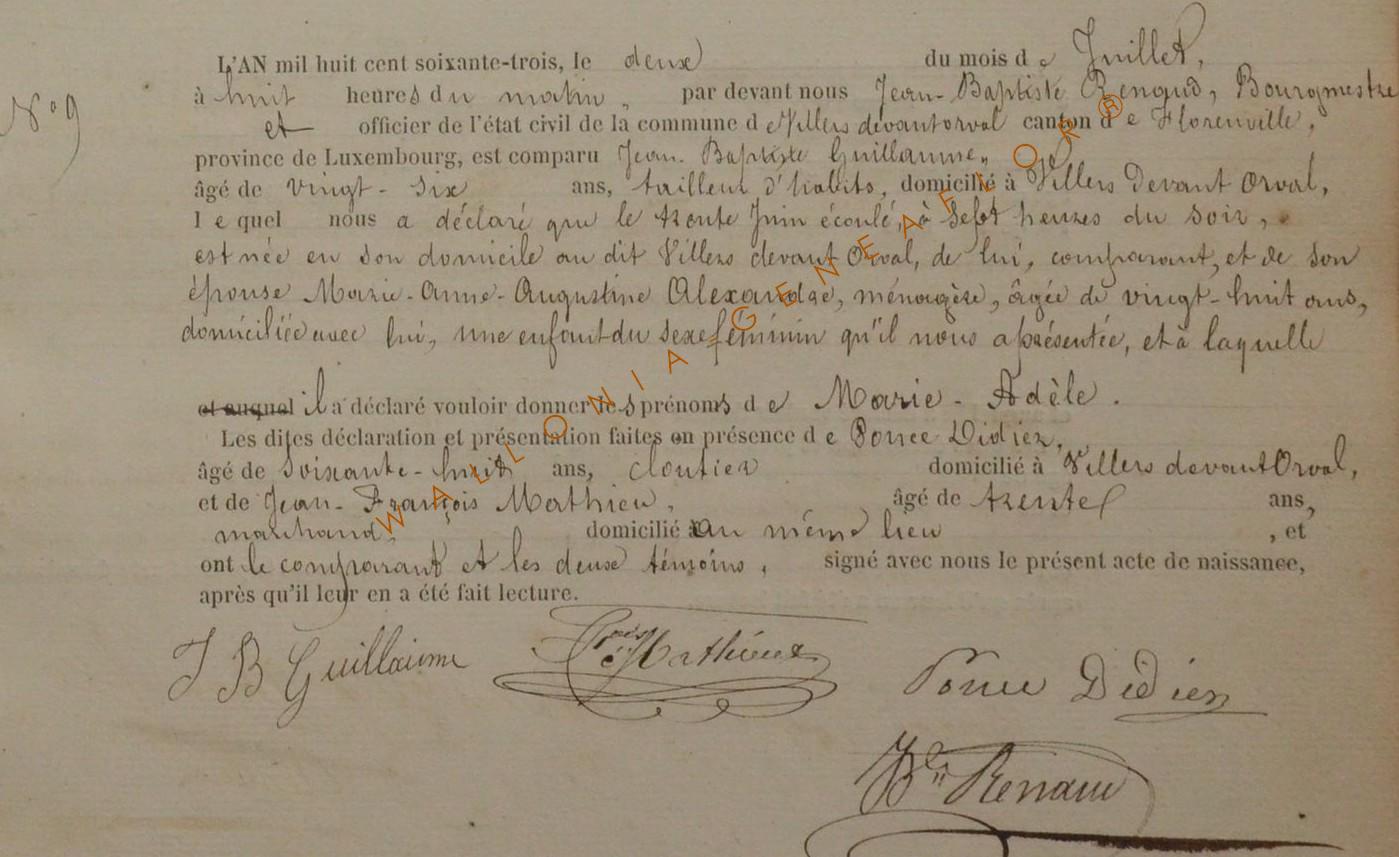 L'AN mil huit cent soixante-trois, le deux du mois de Juillet,
N° 9
à huit heures du matin, par devant nous Jean-Baptiste Renaud, Bourgmestre
et officier de l'état civil de la commune de Villers devant orval canton de Florenville,
province de Luxembourg, est comparu Jean-Baptiste Guillaume,
âgé de vingt-six ans, tailleur d'habits, domicilié à Villers devant Orval,
lequel nous a déclaré que le trente Juin écoulé, à Sept heures du soir,
est née en son domicile au dit Villers devant Orval, de lui, comparant, et de son
épouse Marie-Anne-Augustine Alexandre, ménagère, âgée de vingt-huit ans,
domiciliée avec lui, une enfant du sexe féminin qu'il nous a présentée, et à laquelle
et auquel il a déclaré vouloir donner les prénoms de Marie-Adèle.
Les dites déclaration et présentation faites en présence de Ponce Didier,
âgé de Soixante-huit ans, cloutier domicilié à Villers devant Orval,
et de Jean-François Mathieu, âgé de trente ans,
marchand, domicilié au même lieu, et
ont le comparant et les deux témoins, signé avec nous le présent acte de naissance,
après qu'il leur en a été fait lecture.
J B Guillaume Fçois Mathieux Ponce Didier
JBte Renaud
WALLONIA GENEAFLOR ®